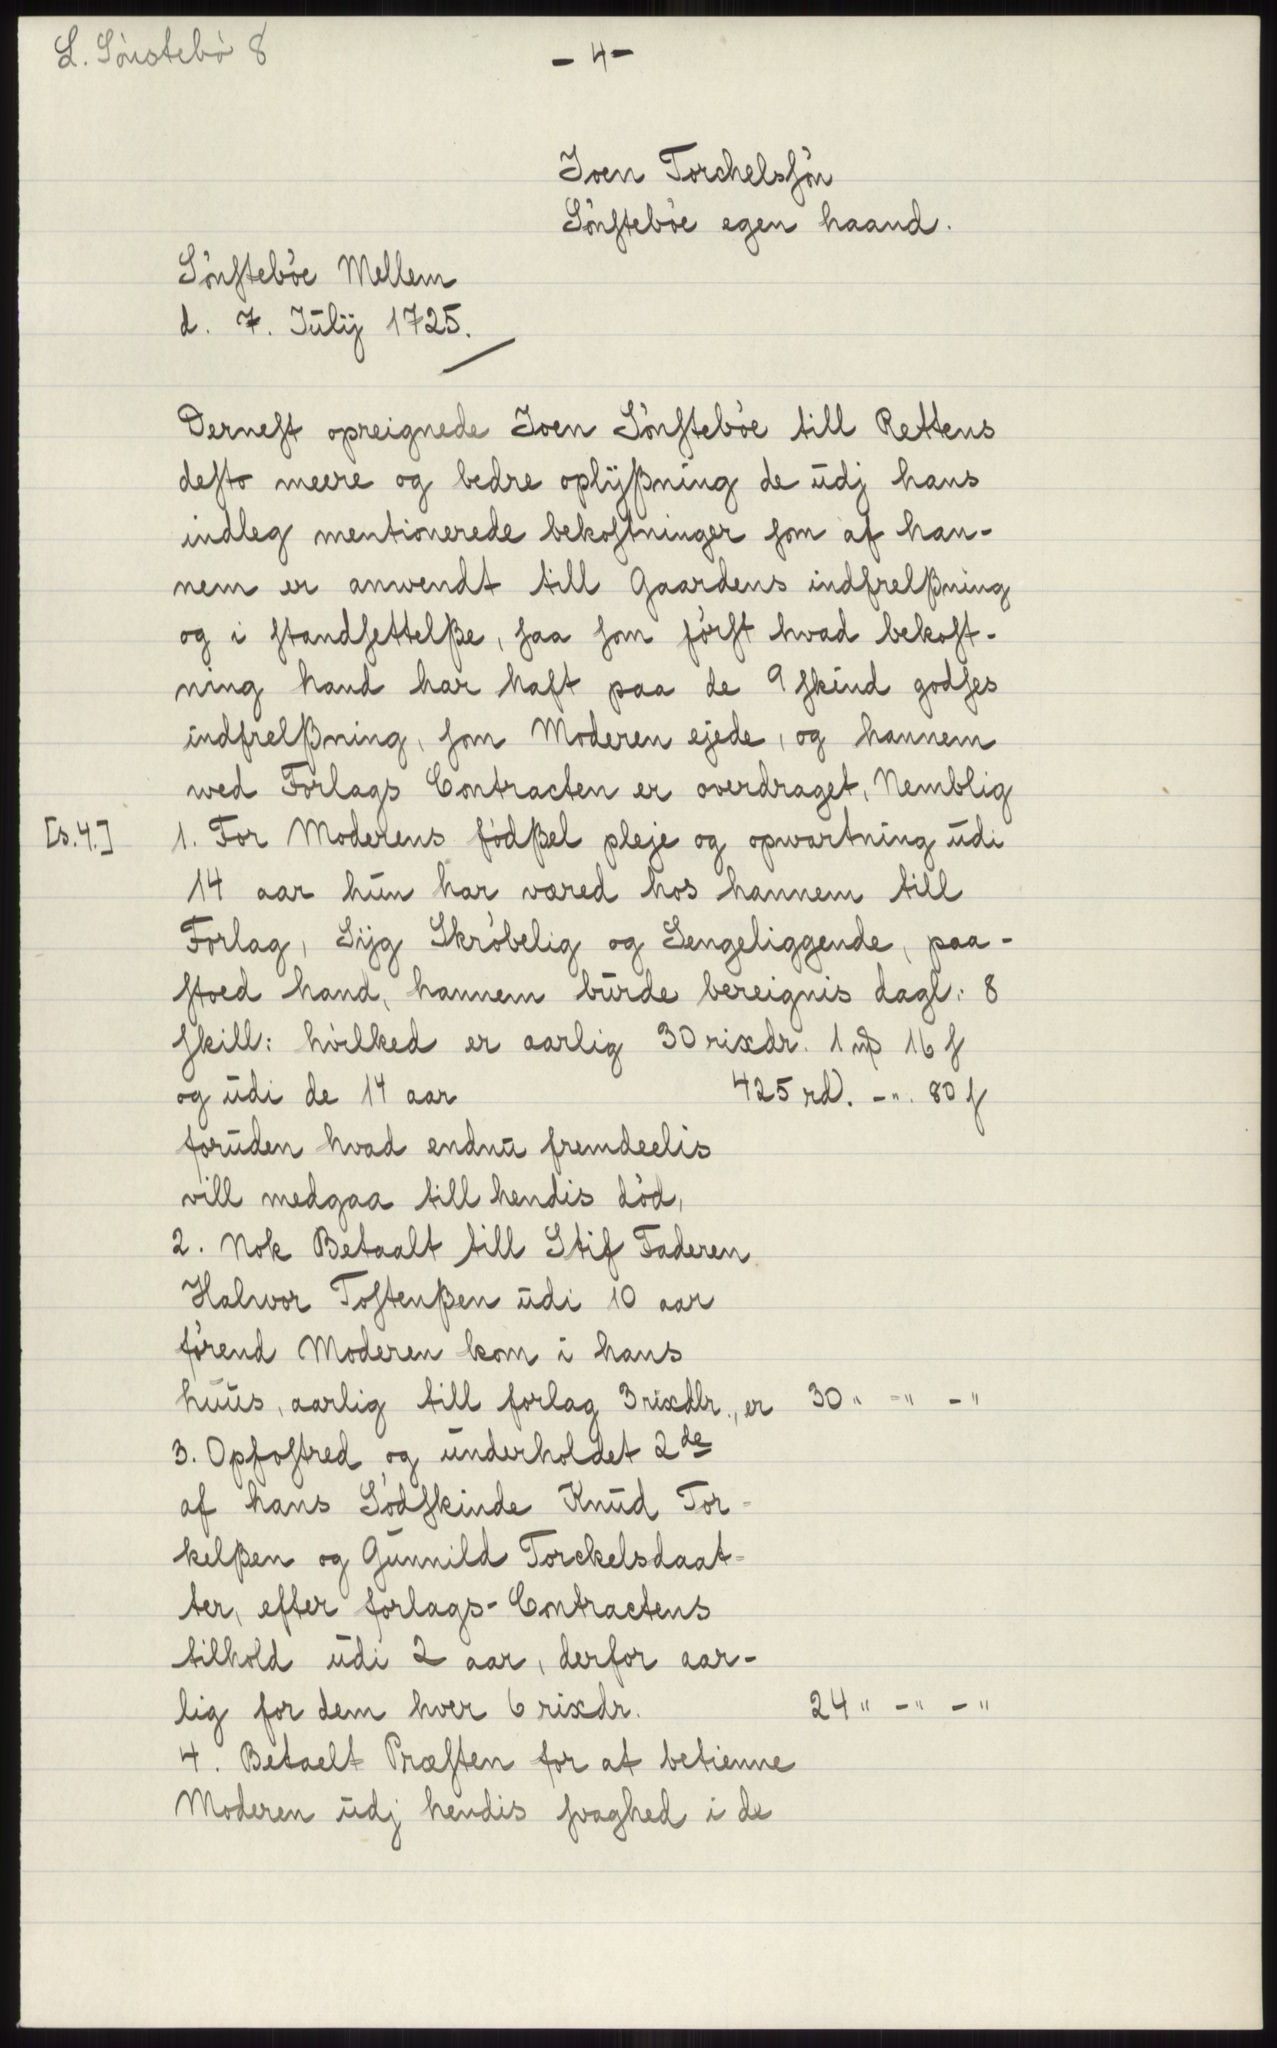 L. Sönstebö 8
- 4 -
Joen Torchelssön
Sönsteböe egen haand.
Sönsteböe Mellem
d. 7. Julij 1725.
Dernest opreignede Joen Sönsteböe till Rettens
desto meere og bedre oplÿßning de udj hans
indleg mentionerede bekostninger som af han-
nem er anwendt till Gaardens indfrelßning
og i standsettelße, saa som först hvad bekost-
ning hand har haft paa de 9 skind godses
indfrelßning, som Moderen ejede, og hannem
wed Forlags Contracten er overdraget, Nemblig
[s.4.] 1. For Moderens födßel pleje og opwartning udi
14 aar hun har væred hos hannem till
Forlag, Sÿg Skröbelig og Sengeliggende, paa-
stoed hand, hannem burde bereignis dagl: 8
skill: hvilked er aarlig 30 rixdr. 1 mþ 16 s
og udi de 14 aar 425 rd. -". 80 s
foruden hvad endnu fremdeelis
vill medgaa till hendis död,
2. Nok Betaalt till Stif Faderen
Halwor Tostenßen udi 10 aar
förend Moderen kom i hans
huus, aarlig till forlag 3 rixdlr., er 30 " -" -"
3. Opfostred og underholdet 2de
af hans Södskinde Knud Tor-
kelßen og Gunnild Torckelsdaat-
ter, efter forlags-Contractens
tilhold udi 2 aar, derfor aar-
lig for dem hver 6 rixdr. 24 " -" -"
4. Betaelt Præsten for at betienne
Moderen udj hendis svaghed i de